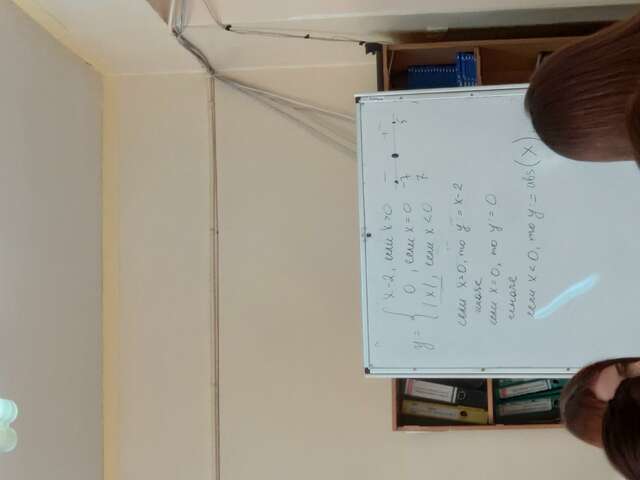 y = { x-2, если x>0
0, если x=0
|x|, если x<0
-7
7
5
если x>0, то y=x-2
иначе
если x=0, то y=0
иначе
если x<0, то y=abs(x)